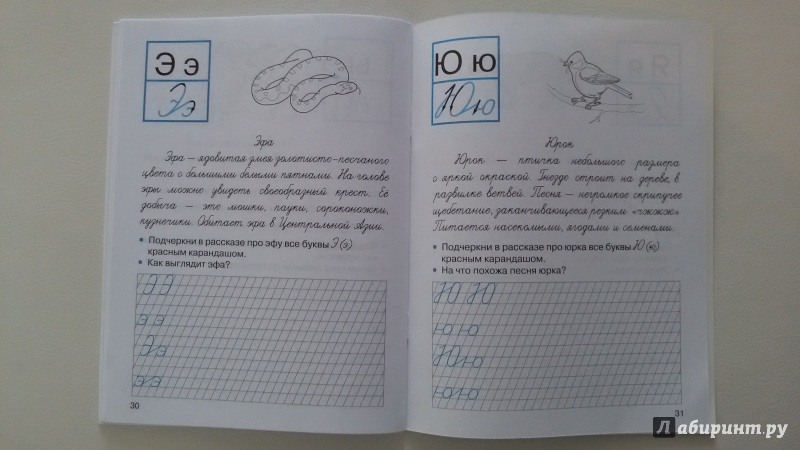 Э э
Ээ
Эфа
Эфа — ядовитая змея золотисто-песчаного
цвета с большими белыми пятнами. На голове
эфы можно увидеть своеобразный крест. Её
добыча — это мошки, пауки, сороконожки,
кузнечики. Обитает эфа в Центральной Азии.
• Подчеркни в рассказе про эфу все буквы Э (э)
красным карандашом.
• Как выглядит эфа?
Э Э
э э
Ээ
ээ
30
Ю ю
Юю
Юрок
Юрок — птичка небольшого размера
с яркой окраской. Гнездо строит на дереве, в
развилке ветвей. Песня — негромкое скрипучее
щебетание, заканчивающееся резким «чжжжж»
Питается насекомыми, ягодами и семенами.
• Подчеркни в рассказе про юрка все буквы Ю (ю)
красным карандашом.
• На что похожа песня юрка?
Ю Ю
ю ю
Юю
юю
31
Лабиринт.ру